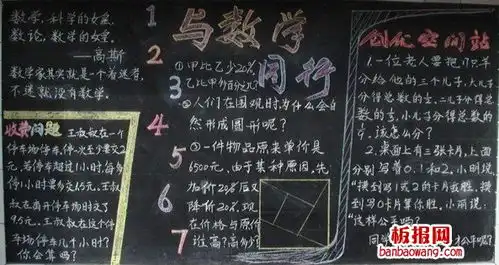 数学,科学的女皇,
数论,数学的女皇。
——高斯
数学家其实就是一个着迷者,
不迷就没有数学。
收费问题
王叔叔在一个
停车场停车。停一次至少要交2
元,若停车超过1小时,每多
停1小时要多交1.5元。王叔
叔在离开停车场时交了
9.5元。王叔叔在这个停
车场停车几个小时?
你会算吗?
1
2
3
4
5
6
7
与数学
同行
①甲比乙少20%,
乙比甲多百分之几?
②人们在围观时,为什么会自
然形成圆形呢?
③一件物品原来单价是
6500元,由于某种原因,先
加价20%后又
降价20%,现
在价格与原价
谁高?高多少?
创优空间站
1.一位老人要把17只羊
分给他的三个儿子,大儿子
分得总数的,二儿子分得总
数的,小儿子分得总数的
,该怎么分?
2.桌面上有三张卡片,上面
分别写着0、1和2,小明说,
"摸到写1或2的卡片我胜,摸
到写0卡片算你胜。小丽说:
"这样公平吗?
同学
才公平呢?
板报网
banbaowang.com